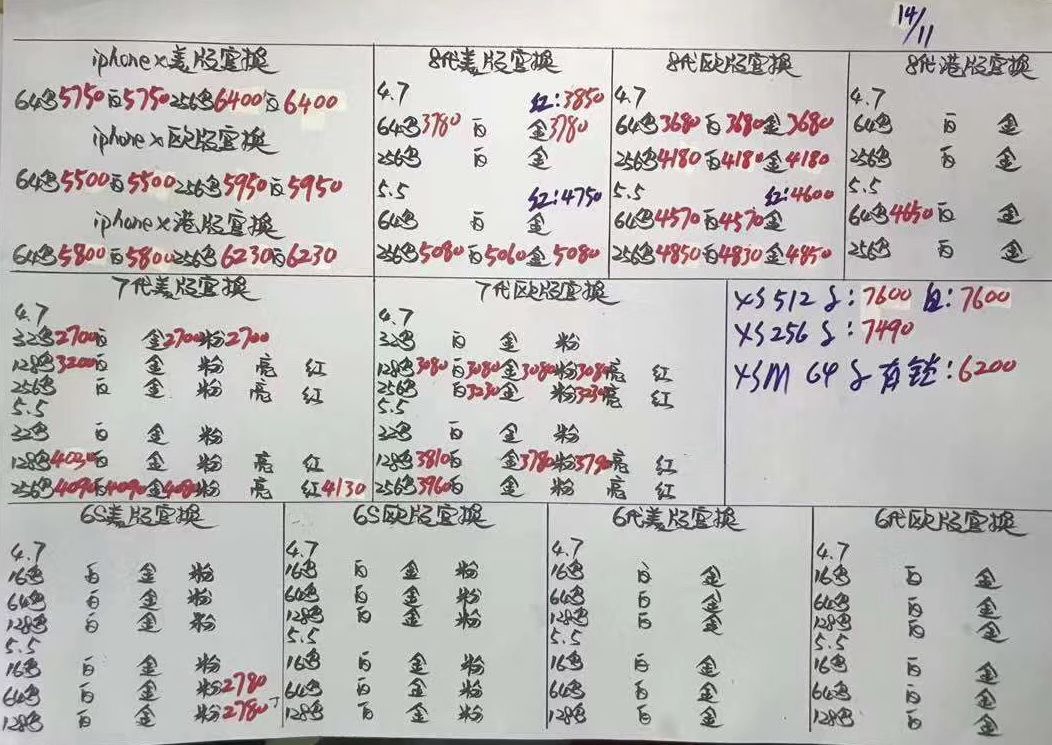 14/11
iphone x 美版官换
64黑5750白5750 256黑6400白6400
iphone x 欧版官换
64黑5500白5500 256黑5950白5950
iphone x 港版官换
64黑5800白5800 256黑6230白6230
8代美版官换
4.7 红:3850
64黑3780 白 金3780
256黑 白 金
5.5 红:4750
64黑 白 金
256黑5080白5060金5080
8代欧版官换
4.7
64黑3680白3680金3680
256黑4180白4180金4180
5.5 红:4600
64黑4570白4570金
256黑4850白4830金4850
8代港版官换
4.7
64黑 白 金
256黑 白 金
5.5
64黑4650白 金
256黑 白 金
7代美版官换
4.7
32黑2700白 金2700粉2700
128黑3200白 金 粉 亮 红
256黑 白 金 粉 亮 红
5.5
32黑 白 金 粉
128黑4030白 金 粉 亮 红
256黑4090白4090金4080粉 亮 红4130
7代欧版官换
4.7
32黑 白 金 粉
128黑3080白3080金3080粉3080亮 红
256黑 白3230金 粉3230亮 红
5.5
32黑 白 金 粉
128黑3810白 金3780粉3790亮 红
256黑3960白 金 粉 亮 红
XS 512 G:7600 白:7600
XS 256 G:7490
XSM 64 G 有锁:6200
6S美版官换
4.7
16黑 白 金 粉
64黑 白 金 粉
128黑 白 金 粉
5.5
16黑 白 金 粉
64黑 白 金 粉2780
128黑 白 金 粉2780
6S欧版官换
4.7
16黑 白 金 粉
64黑 白 金 粉
128黑 白 金 粉
5.5
16黑 白 金 粉
64黑 白 金 粉
128黑 白 金 粉
6代美版官换
4.7
16黑 白 金
64黑 白 金
128黑 白 金
5.5
16黑 白 金
64黑 白 金
128黑 白 金
6代欧版官换
4.7
16黑 白 金
64黑 白 金
128黑 白 金
5.5
16黑 白 金
64黑 白 金
128黑 白 金